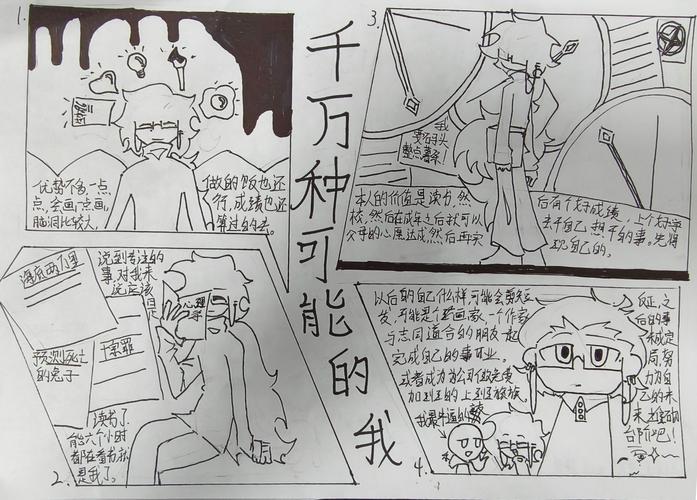 千万种可能的我
1.
优势不多,一点
点,会画一点画,
脑洞比较大,
做的饭也还
行,成绩也还
算过的去。
2.
海底两万里
预测死亡
的兔子
索罪
说到专注的
事,对我来
说应该
是
心理学
读书了,
能六个小时
都在看书就
是我了。
3.
我
要石头
整点薯条!
本人的价值是读书,然
后有个好成绩,上个好学
校,然后在成年之后就可以
去干自己想干的事。先将
父母的心愿达成,然后再实
现自己的。
4.
以后的自己什么样,可能会剪短
发,可能是个画家,一个作家,
与志同道合的朋友一起
完成自己的事业。
或者成为为公司做免费
加班的上班族。
我最牛逼的
反正,之
后的事
未成定
局,努
力为自
己的未
来
台阶吧!